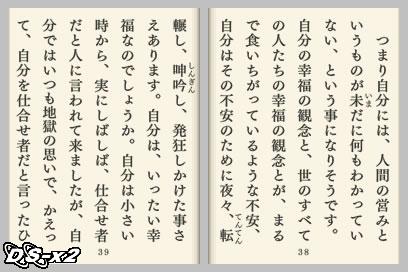 つまり自分には、人間の営みと
いうものが未だに何もわかってい
ない、という事になりそうです。
自分の幸福の観念と、世のすべて
の人たちの幸福の観念とが、まる
で食いちがっているような不安、
自分はその不安のために夜々、転
てんてん
いま
38
輾し、呻吟し、発狂しかけた事さ
しんぎん
えあります。自分は、いったい幸
福なのでしょうか。自分は小さい
時から、実にしばしば、仕合せ者
だと人に言われて来ましたが、自
分ではいつも地獄の思いで、かえっ
て、自分を仕合せ者だと言ったひ
39
DS-x2